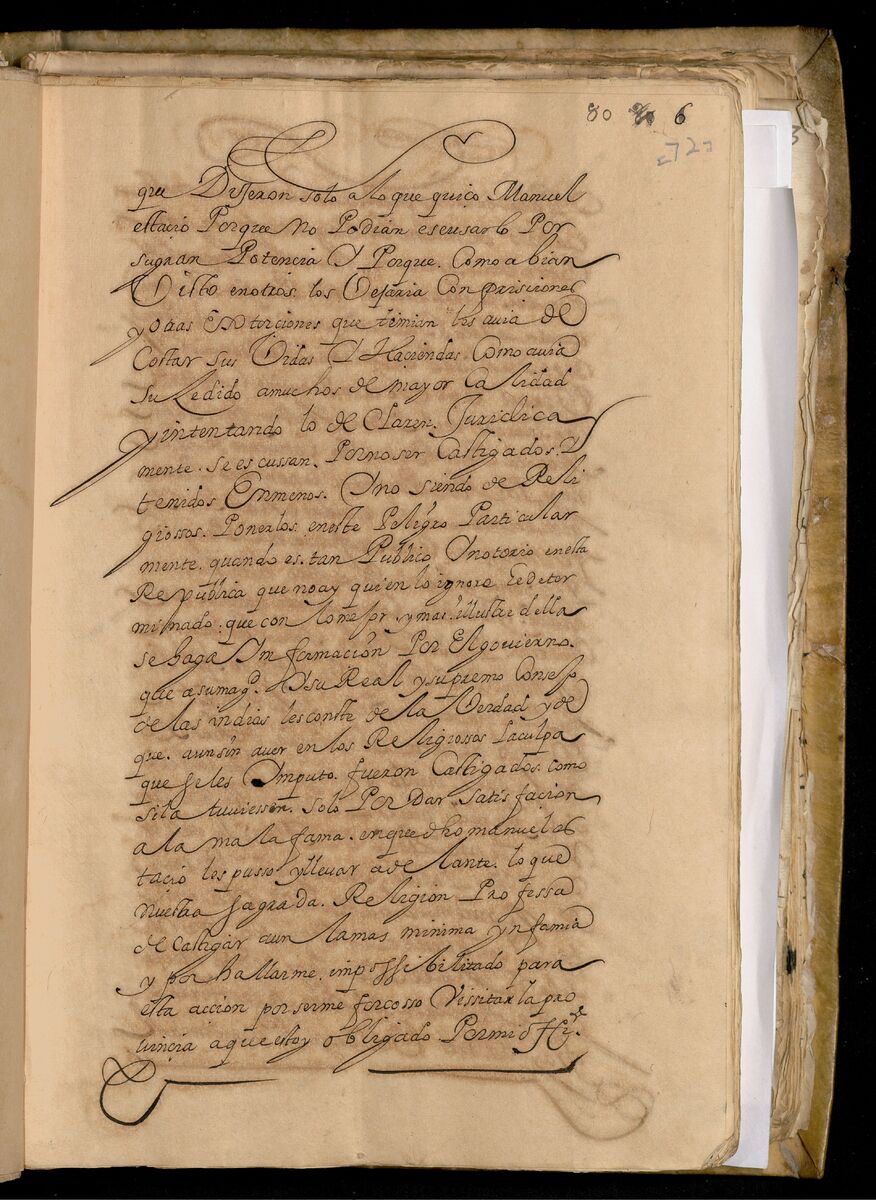 80 20 6
[72]
que Dijeron solo a lo que quiço Manuel
estaçio Porque No Podian escusarlo Por
su gran Potencia Y Porque. Como abian
Visto en otros los Vejaria Con prisiones
y otras Extorciones que temian les auia de
Costar sus Vidas Y Haciendas Como auia
suCedido a muchos de mayor Calidad
y intentando lo de Claren. Juridica
mente. se escussan. Por no ser Castigados. Y
tenidos En menos. Y no siendo de Reli
giossos. Ponerlos. en este Peligro Particular
mente. quando es. tan Publico Y notorio en esta
Republica que no ay quien lo ignore E deter
minado. que con lo mejor y mas illustre della
se haga Ynformaçion Por El gouierno.
que a su magd. Y su Real y supremo Consejo
de las indias les conste de la Verdad y de
que. aun sin auer en los Religiossos la culpa
que se les Ymputo. fueron Castigados. como
si la tuuiessen. solo Por dar satisfacion
a la mala fama. en que dho manuel es
taçio les pusso y lleuar adelante. lo que
nuestra sagrada. Religion Professa
de Castigar aun la mas minima ynfamia
y por hallarme. impossibilitado para
esta accion por serme forcosso Vissitar la pro
uincia a que estoy obligado Per mi offiº.